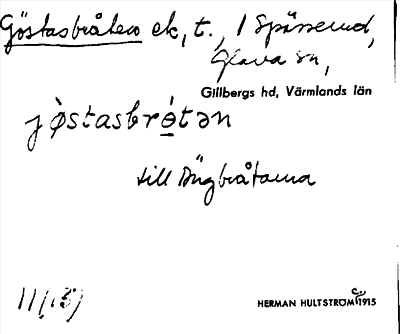 Göstasbråten ek, t., / Spässerud,
Glava sn,
Gillbergs hd, Värmlands län
jø̀stasbrɵ́tən
till Dügbråtarna
11/(15)
HERMAN HULTSTRÖM c. 1915